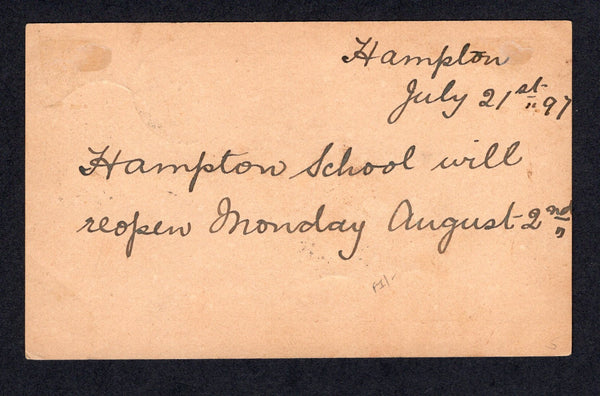 Hampton
July 21st " 97
Hampton School will
reopen Monday August 2nd "